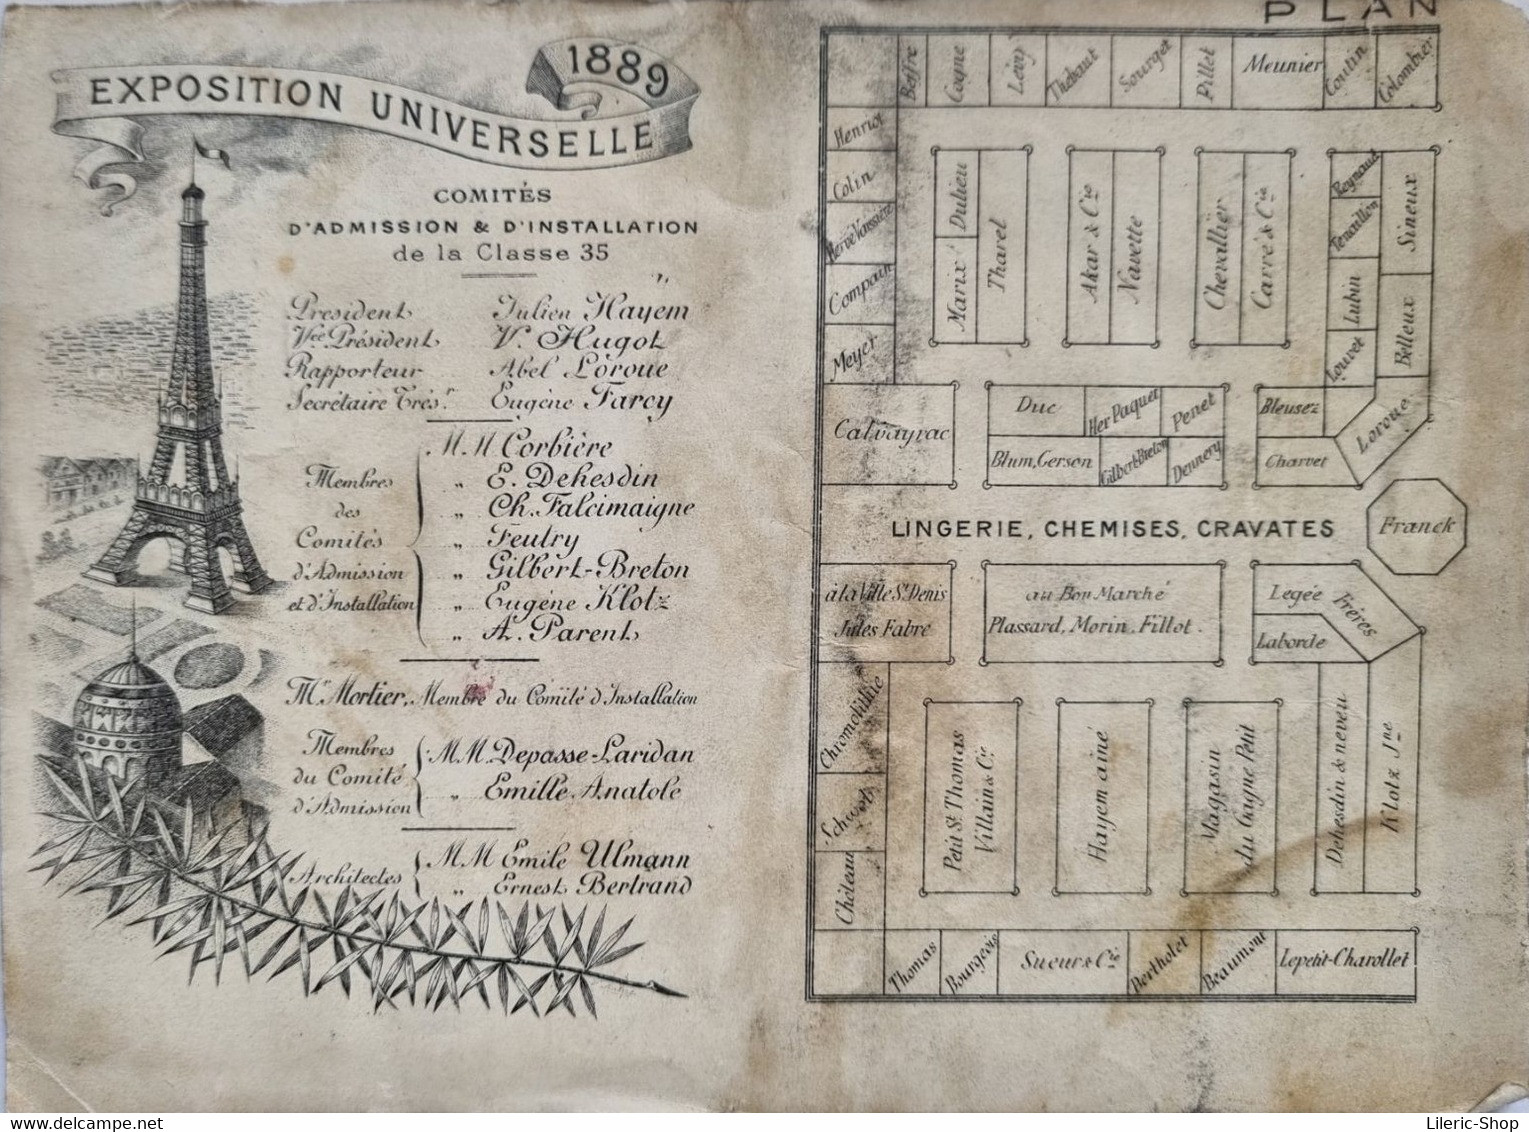 EXPOSITION UNIVERSELLE 1889
COMITÉS
D'ADMISSION & D'INSTALLATION
de la Classe 35
Président Julien Hayem
Vce Président V. Hugot
Rapporteur Abel Loroue
Secrétaire Trésr Eugène Farcy
Membres des Comités d'Admission et d'Installation
M.M. Corbière
„ E. Dehesdin
„ Ch. Falcimaigne
„ Feutry
„ Gilbert-Breton
„ Eugène Klotz
„ A. Parent
Mr Mortier, Membre du Comité d'Installation
Membres du Comité d'Admission
M.M. Depasse-Laridan
„ Emille Anatole
Architectes
M.M Emile Ulmann
„ Ernest Bertrand
PLAN
Boffre
Cogne
Lévy
Thébaut
Sourget
Pillet
Meunier
Coutin
Colombier
Henriot
Colin
Hervé Vanssière
Compain
Meyer
Marix
Dulieu
Tharel
Akar & Cie
Navette
Chevallier
Carré & Cie
Reynaud
Tenaillon
Lubin
Louvet
Sineux
Belleux
Calvayrac
Duc
Her Paquet
Penet
Blum, Gerson
Gilbert-Breton
Dennery
Bleusez
Charvet
Loroue
LINGERIE, CHEMISES, CRAVATES
Franck
à la Ville St Denis
Jules Fabre
au Bon Marché
Plassard, Morin, Fillot.
Legée Frères
Laborde
Schwob
Château
Petit St Thomas
Villain & Cie
Hayem ainé
Magasin
du Gagne Petit
Dehesdin & neveu
Klotz Jne
Thomas
Bourgeois
Sueur & Cie
Bertholet
Beaumont
Lepetit-Charollet
Lileric-Shop